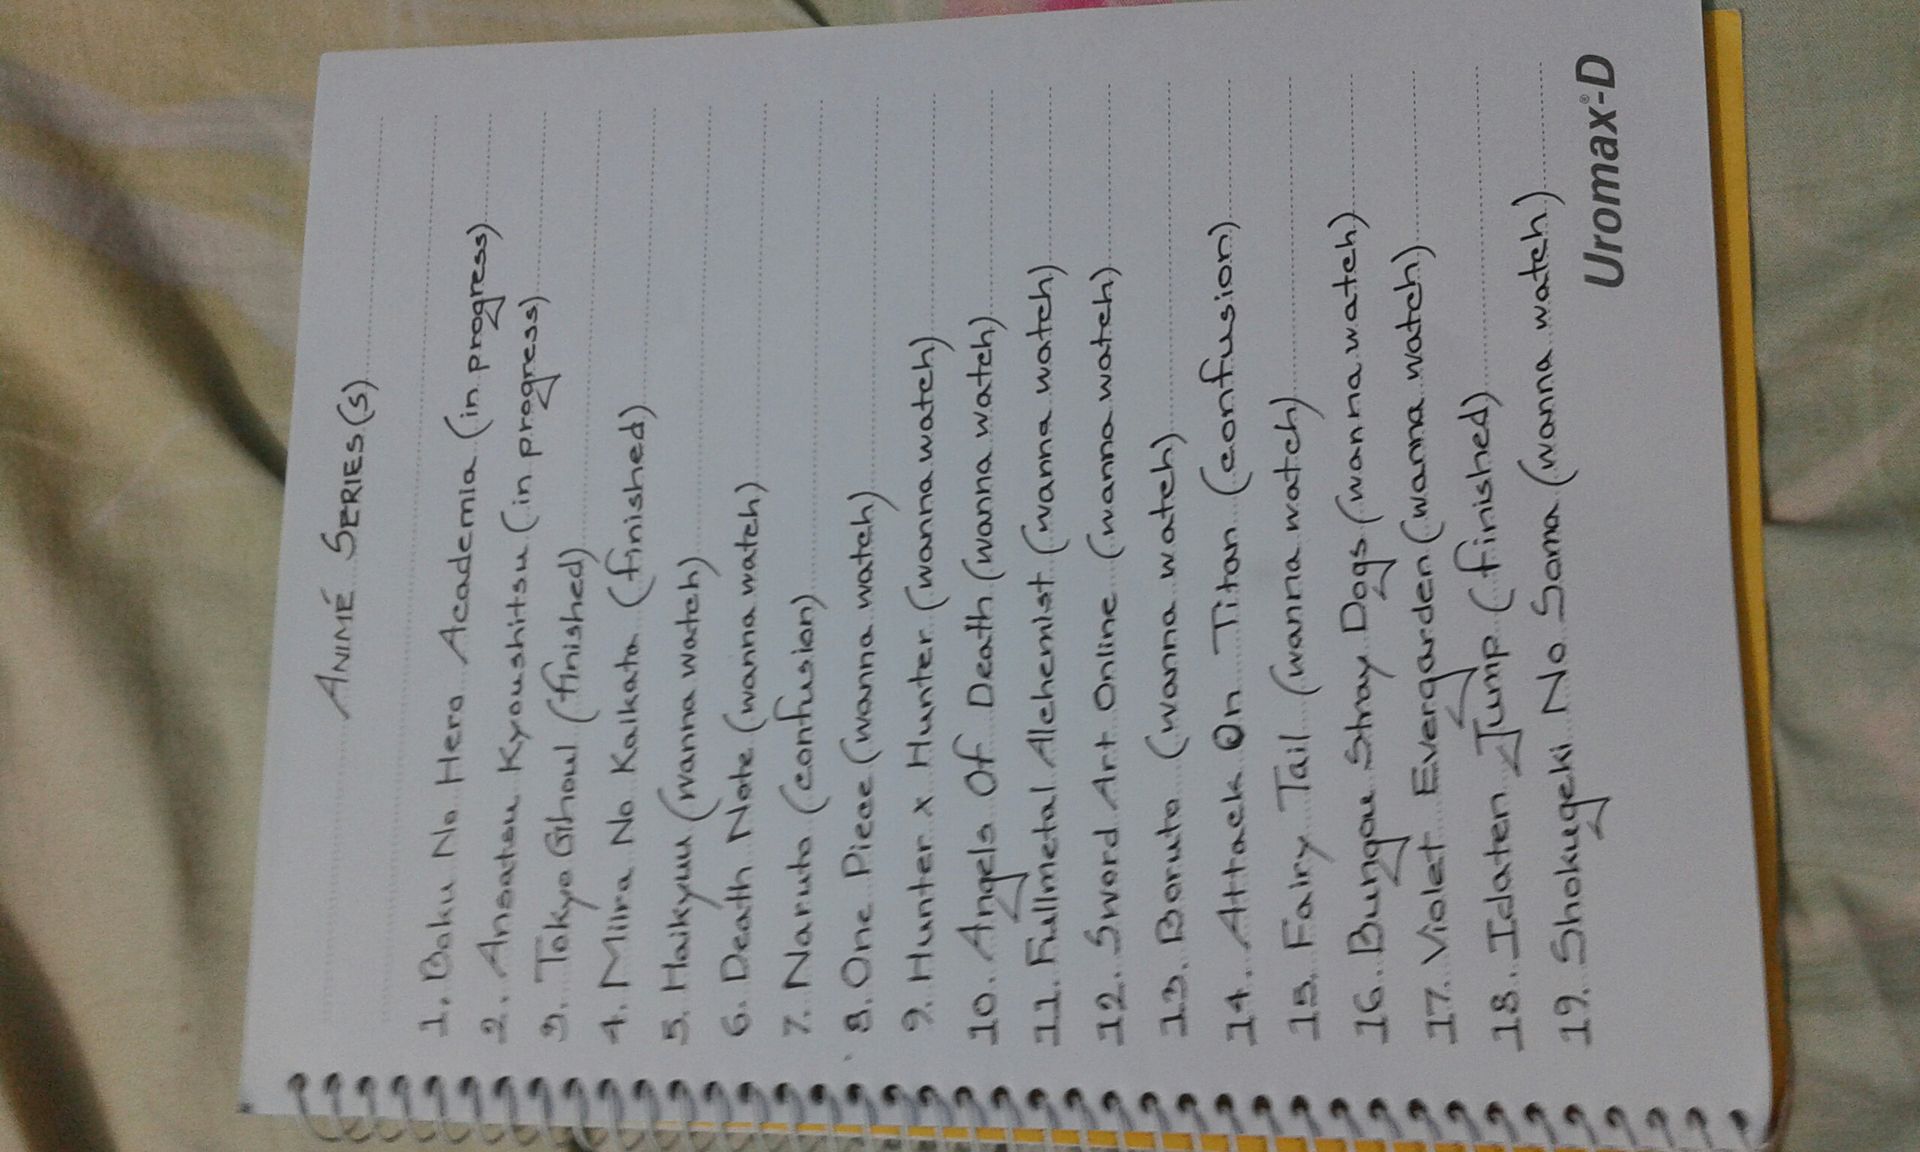 ANIMÉ SERIES(s)
1. Boku No Hero Academia (in progress)
2. Ansatsu Kyoushitsu (in progress)
3. Tokyo Ghoul (finished)
4. Miira No Kaikata (finished)
5. Haikyuu (wanna watch)
6. Death Note (wanna watch)
7. Naruto (confusion)
8. One Piece (wanna watch)
9. Hunter x Hunter (wanna watch)
10. Angels Of Death (wanna watch)
11. Fullmetal Alchemist (wanna watch)
12. Sword Art Online (wanna watch)
13. Boruto (wanna watch)
14. Attack On Titan (confusion)
15. Fairy Tail (wanna watch)
16. Bungou Stray Dogs (wanna watch)
17. Violet Evergarden (wanna watch)
18. Idaten Jump (finished)
19. Shokugeki No Soma (wanna watch)
Uromax®-D